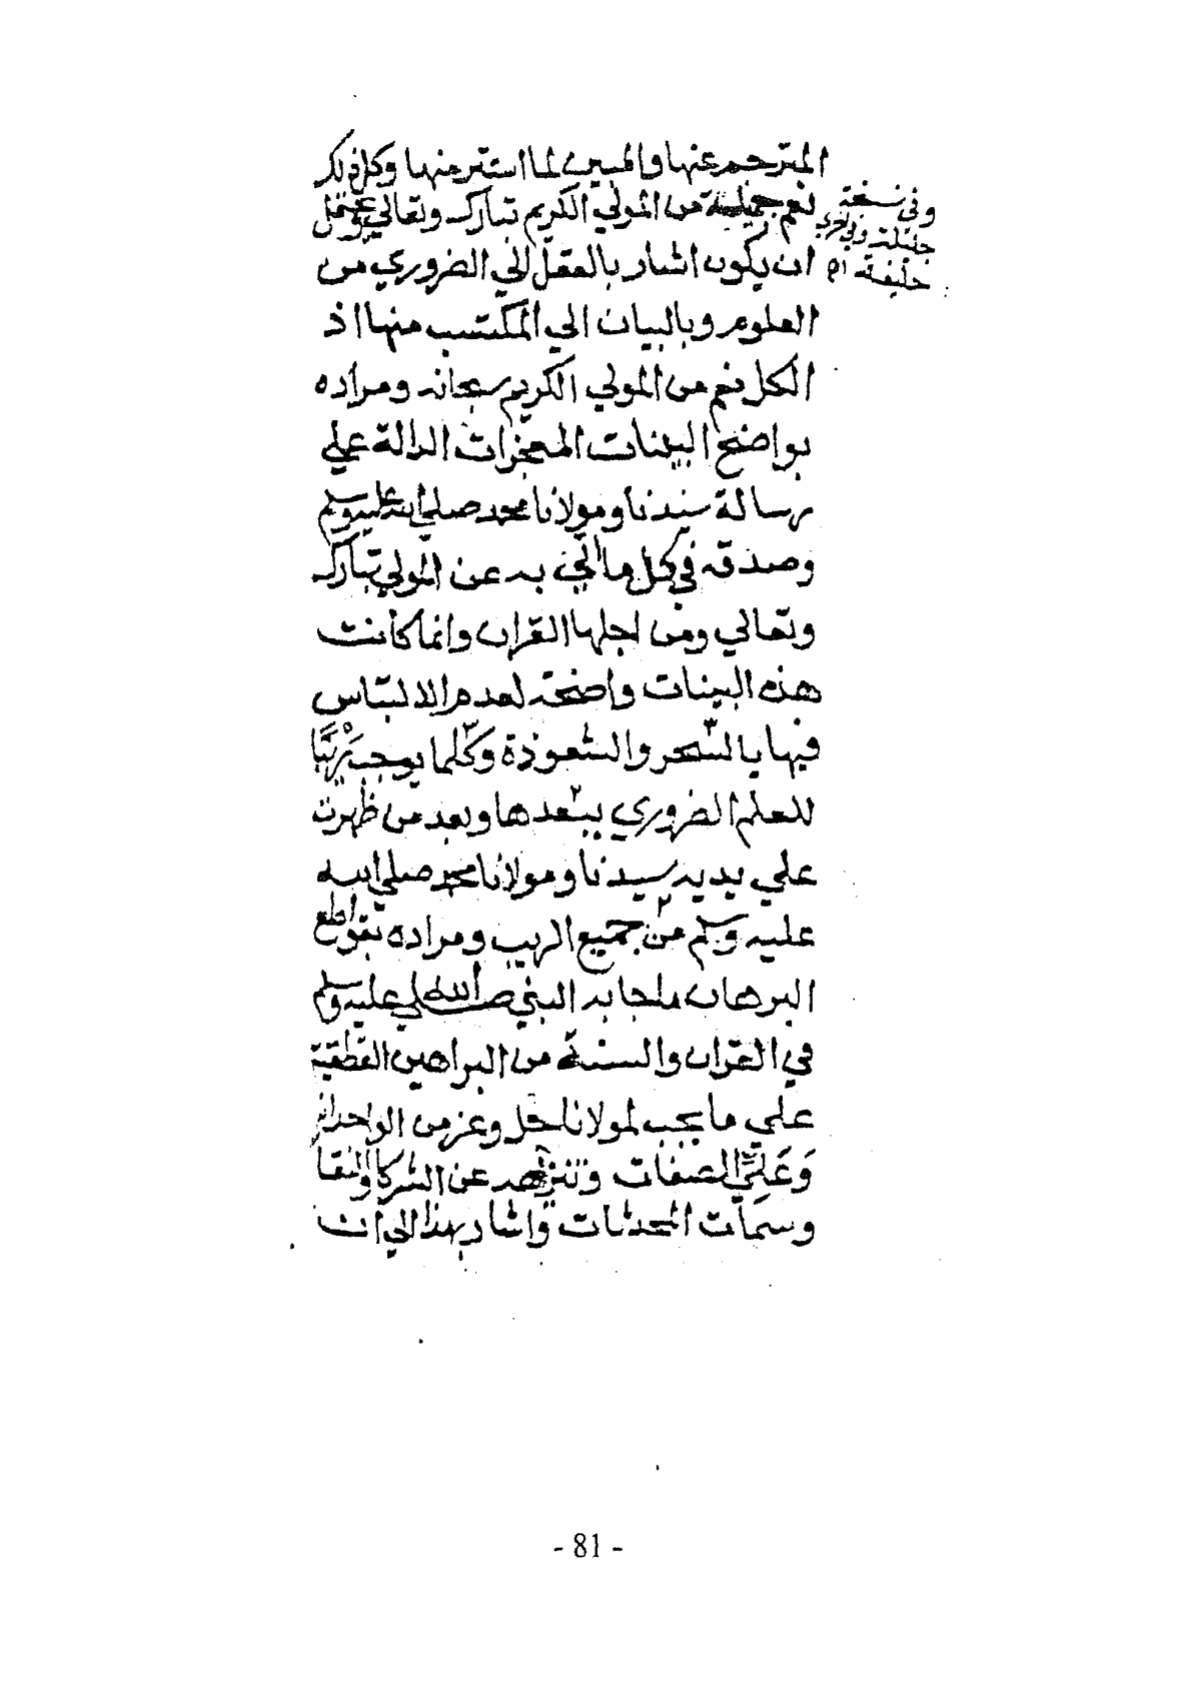 المترجم عنها والمبين لما استتر منها وكل ذلك
نعم جميلة من المولي الكريم تبارك وتعالي ويحتمل
وفي نسخة
جليلة وفي اخري
خليفة اه
ان يكون اشار بالعقل الي الضروري من
العلوم وبالبيان الي المكتسب منها اذ
الكل نعم من المولي الكريم سبحانه ومراده
بواضح البينات المعجزات الدالة علي
رسالة سيدنا ومولانا محمد صلي الله عليه وسلم
وصدقه في كل ما اتي به عن المولي تبارك
وتعالي ومن اجلها القران وانما كانت
هذه البينات واضحة لعدم الالتباس
فيها بالسّحر والشعوذة وكلما يوجب رَيْبًا
للعلم الضروري ببعدها وبعد من ظهرت
علي يديه سيدنا ومولانا محمد صلي الله
عليه وسلم من جميع الريب ومراده بقواطع
البرهان ما جا به النبي صلي الله عليه وسلم
في القران والسنة من البراهين القطعية
علي ما يجب لمولانا جل وعز من الوحدانية
وَعَلِيّ الصفات وتنزهه عن الشركا والنقا
وسمات المحدثات واشار بهذا الي ان
- 81 -